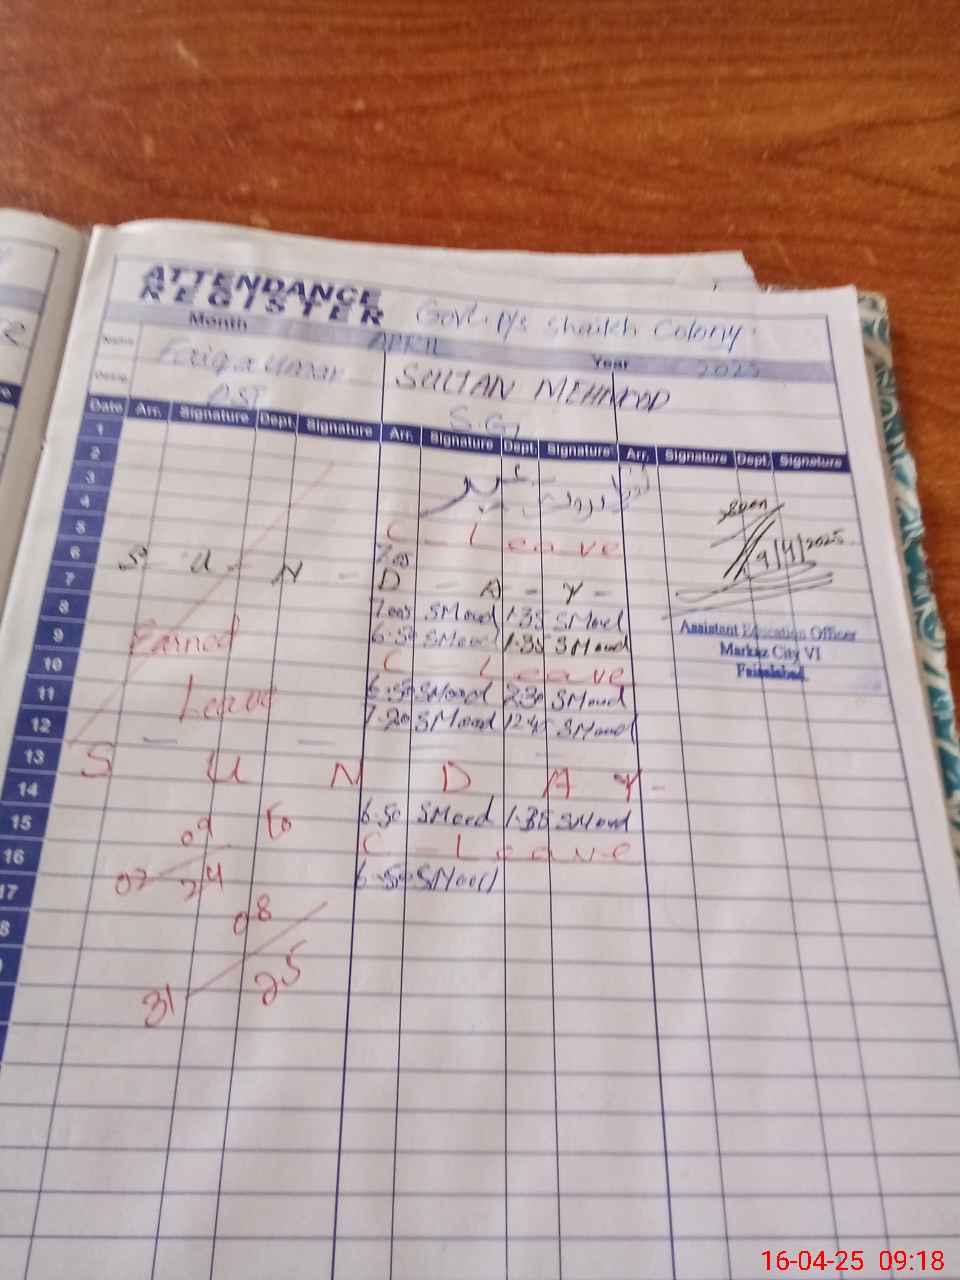 ATTENDANCE
REGISTER Govt. P/s Shaikh Colony.
Month APRIL Year 2025
Name Faiqa Umar SULTAN MEHMOOD
PST S.G,
Date Arr. Signature Dept. Signature Arr. Signature Dept. Signature Arr. Signature Dept. Signature
1
2
3
4
5 C - Leave
6 S - U - N - D - A - Y -
7.00
7
8 7.00 SMood 1.35 SMood
9 Earned 6.50 SMood 1.35 SMood
10 C Leave
11 Leave 6.50 SMood 2.30 SMood
12 7.20 SMood 12.45 SMood
13 S U N D A Y -
14
15 6.50 SMood 1.35 SMood
16 C - Leave
17 6.50 SMood
09 to
02 24
08
31 25
Seen
9/4/2025
Assistant Education Officer
Markaz City VI
Faisalabad.
16-04-25 09:18